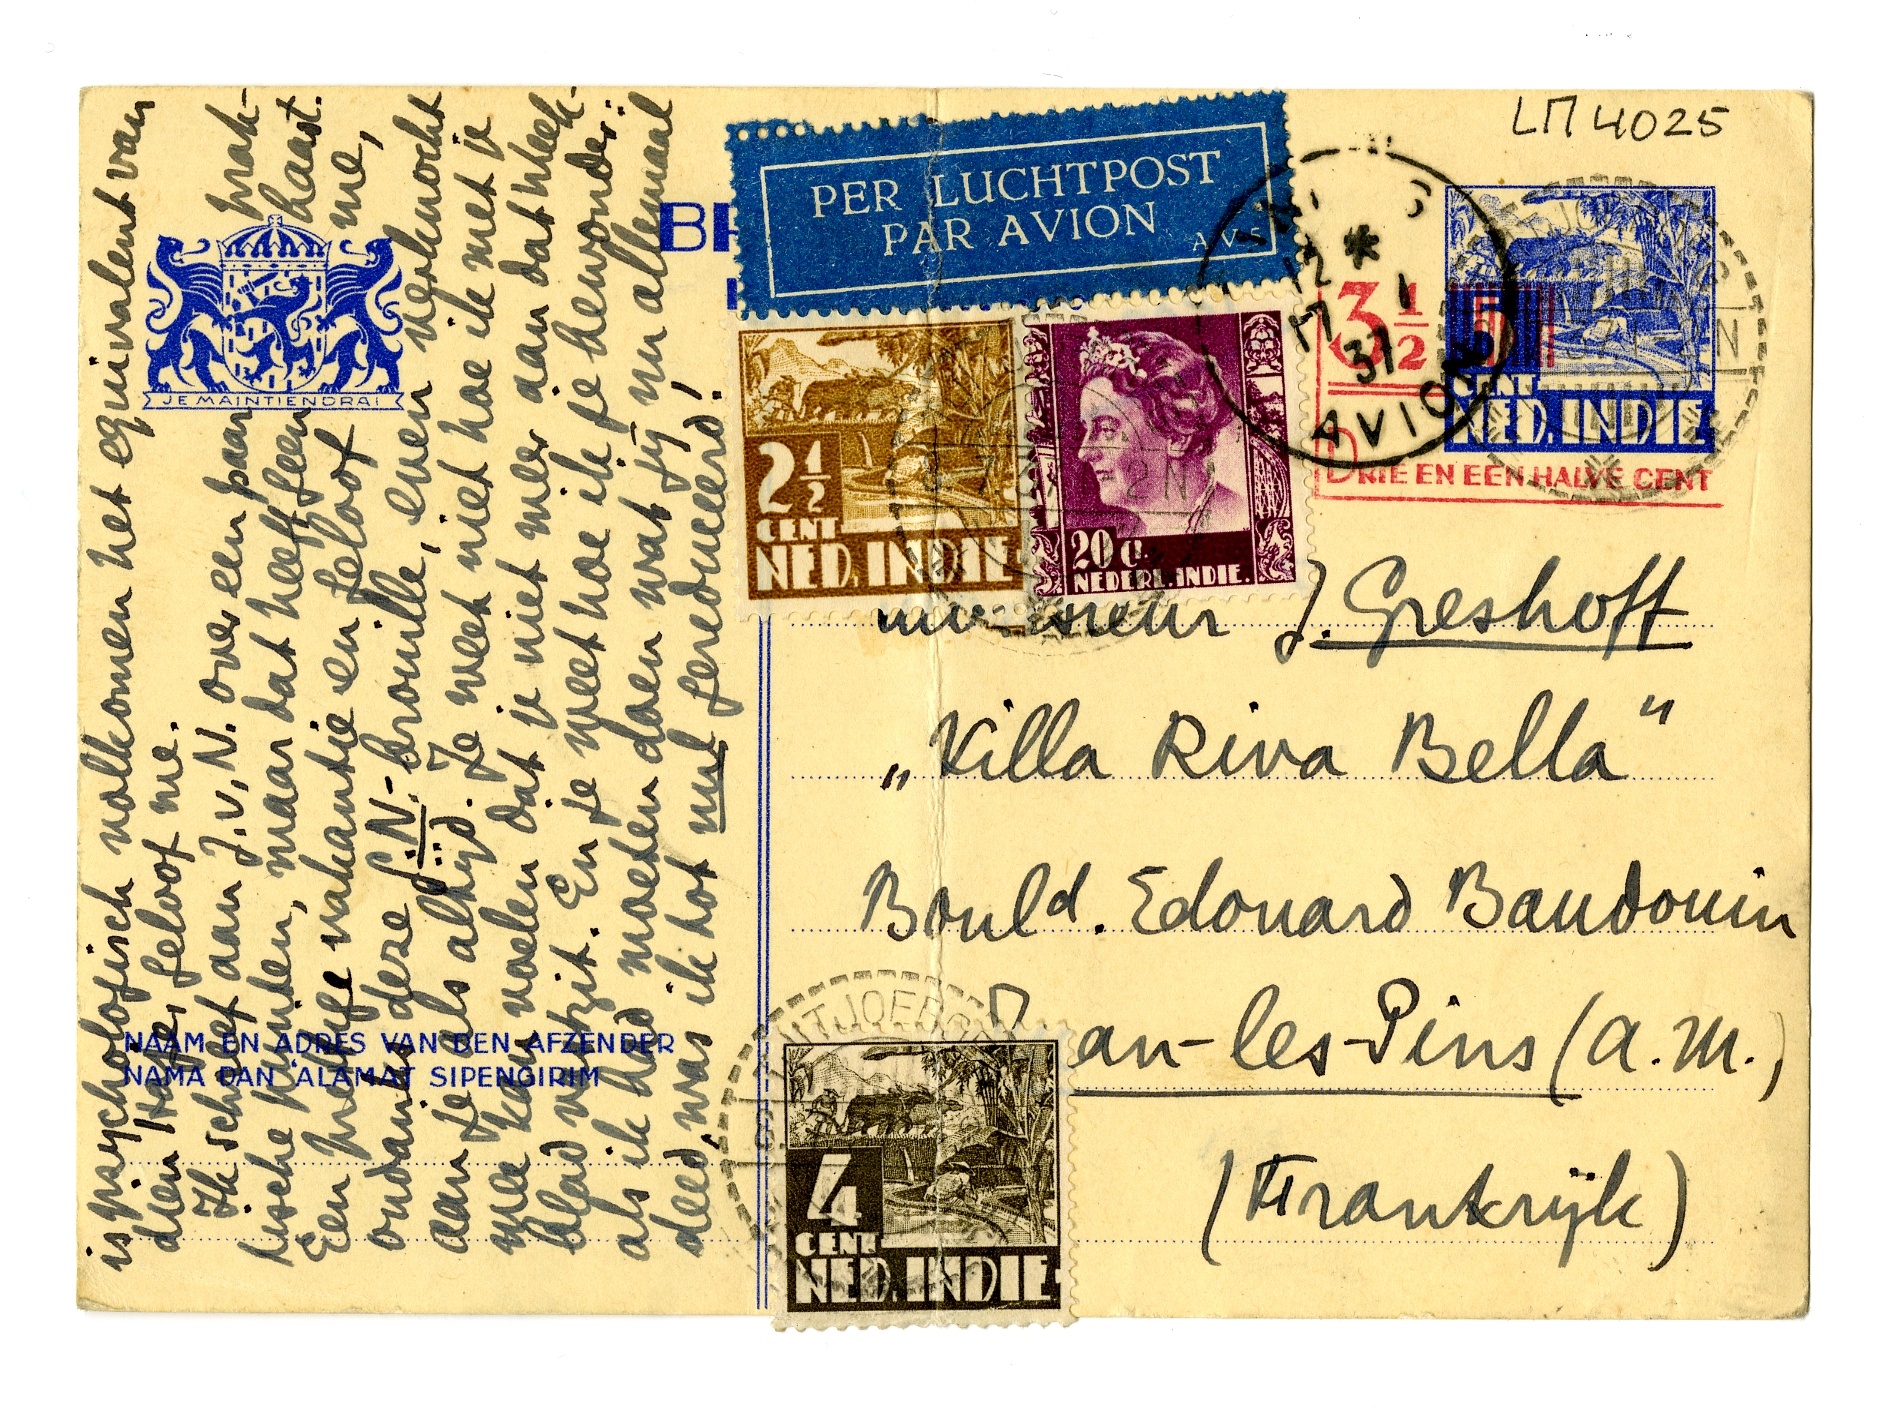 is psychologisch volkomen het equivalent van
dien Hage, geloof me.
Ik schreef aan J.v.N. over een paar prak-
tische punten, maar dat heeft geen haast.
Een prettige vakantie en geloof me,
ondanks deze G.N.-brouille, even verknocht
aan je als altyd. Je weet niet hoe ik met je
mee kan voelen dat je niet meer aan dat week-
blad vastzit. En je weet hoe ik je bewonder:
als ik had moeten doen wat jij nu allemaal
deed, was ik tot nul gereduceerd!
JE MAINTIENDRAI
NAAM EN ADRES VAN DEN AFZENDER
NAMA DAN ALAMAT SIPENGIRIM
PER LUCHTPOST
PAR AVION
A.V.5
LM 4025
2½
CENT
NED. INDIE
20 ct.
NEDERL. INDIE.
12 *
17 1
37
AVION
3½
5
CENT
NED. INDIE
DRIE EN EEN HALVE CENT
monsieur J. Greshoff
„Villa Riva Bella"
Bould. Edouard Baudouin
Juan-les-Pins (A.M.)
(Frankrijk)
4
CENT
NED. INDIE